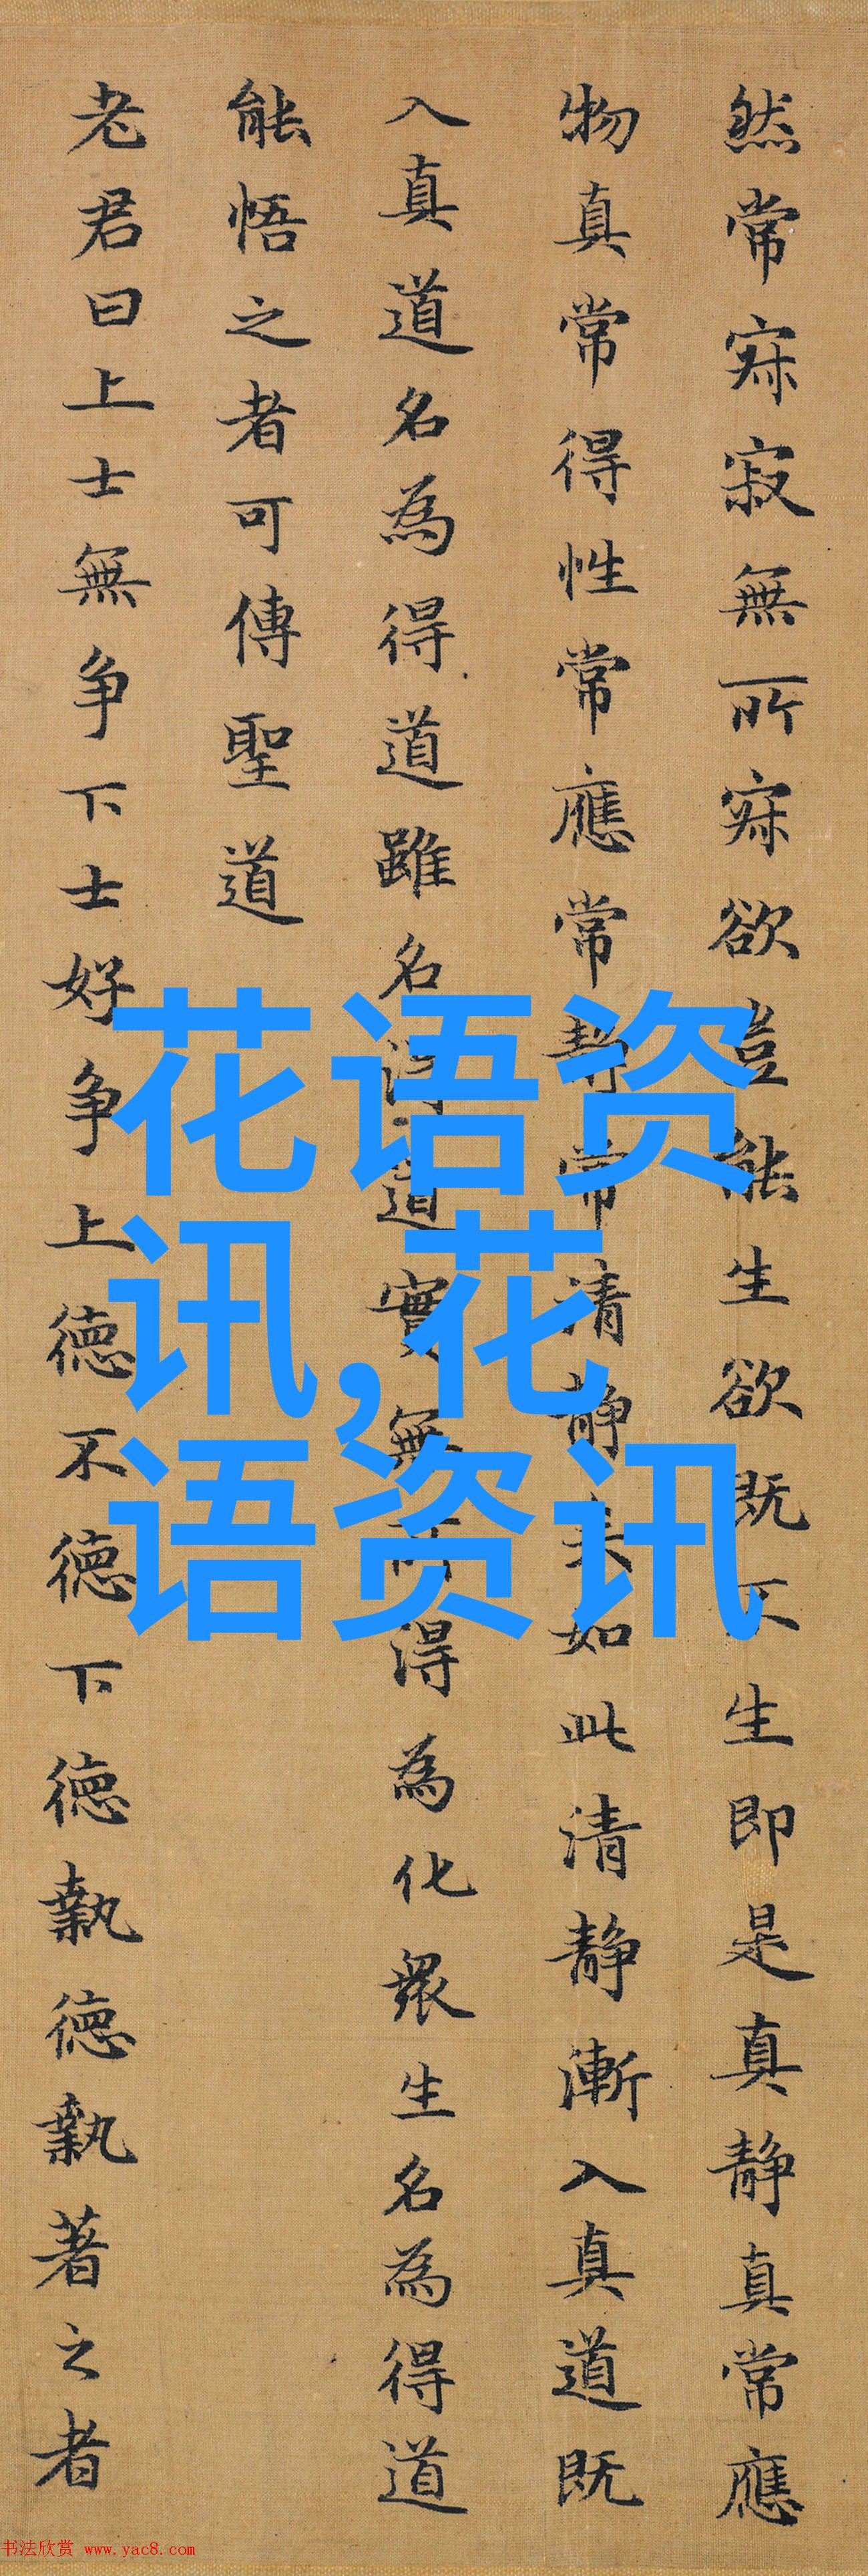 然常寂寂無所寂欲豈能生欲既不生即是真静真常應
物真常得性常應常静常清静矣如此清静漸入真道既
入真道名為得道雖名得道實無所得為化衆生名為得道
能悟之者可傳聖道
老君曰上士無争下士好争上德不德下德執德執著之者
花语资
讯,花
语资讯
书法欣赏 www.yac8.com